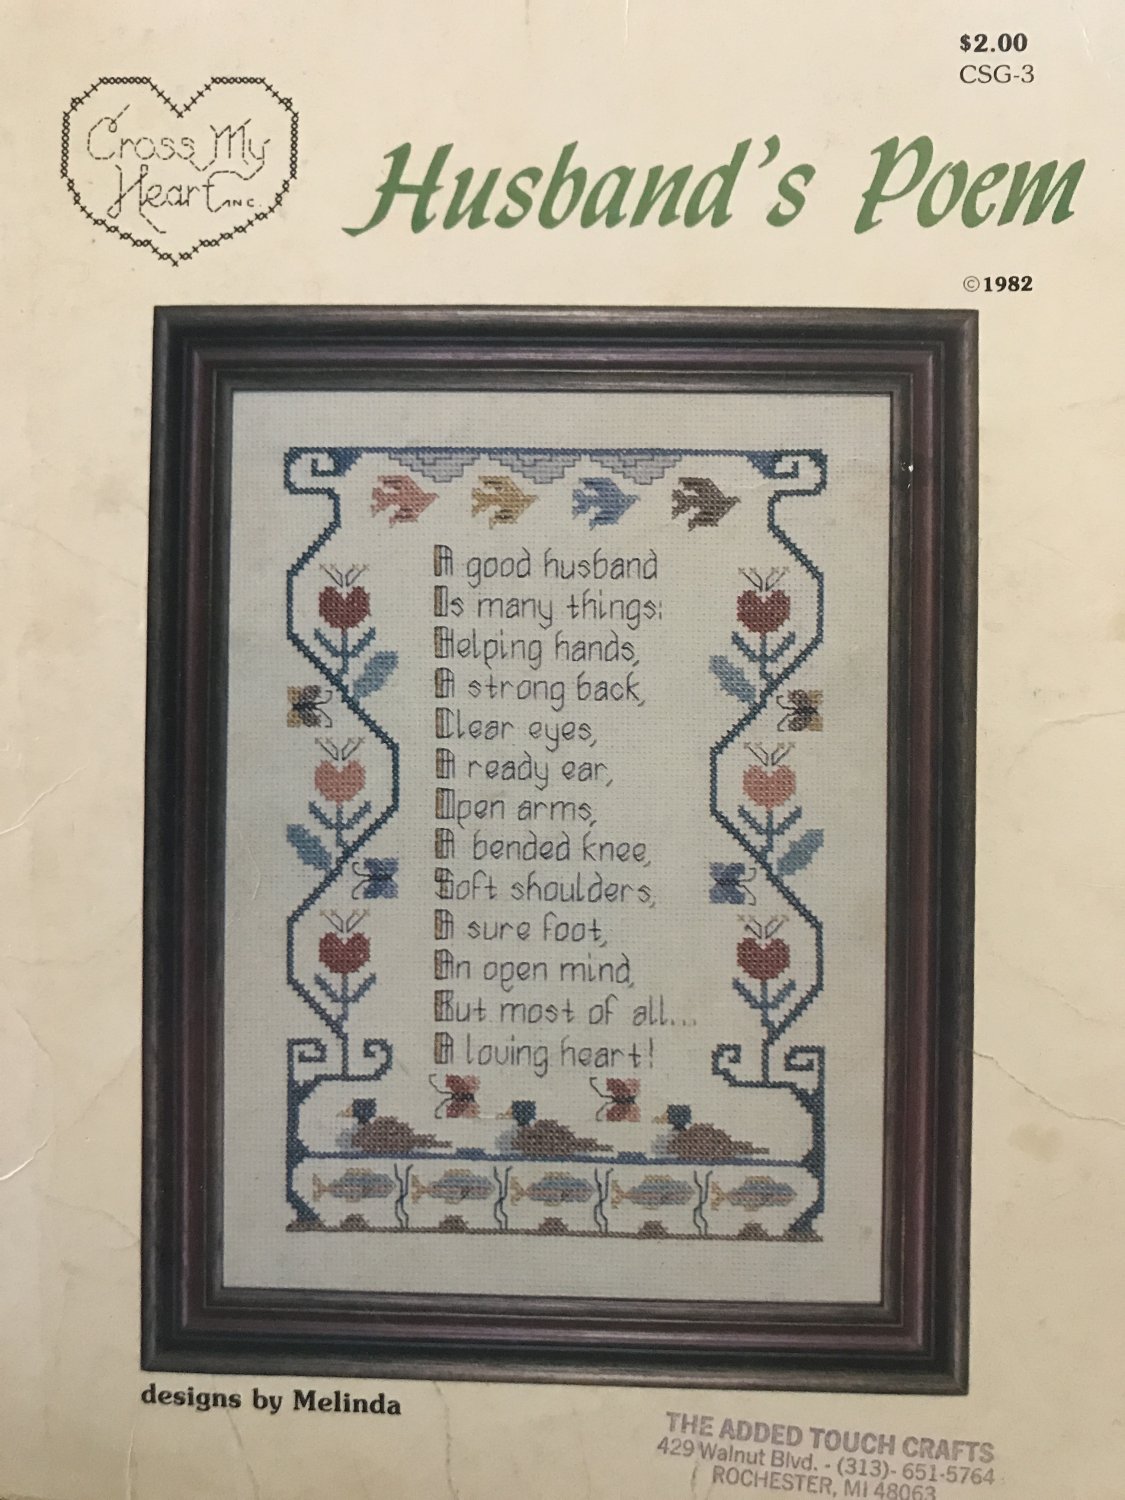 $2.00
CSG-3
Cross My
Heart INC.
Husband's Poem
©1982
A good husband
Is many things:
Helping hands,
A strong back,
Clear eyes,
A ready ear,
Open arms,
A bended knee,
Soft shoulders,
A sure foot,
An open mind,
But most of all...
A loving heart!
designs by Melinda
THE ADDED TOUCH CRAFTS
429 Walnut Blvd. - (313)- 651-5764
ROCHESTER, MI 48063